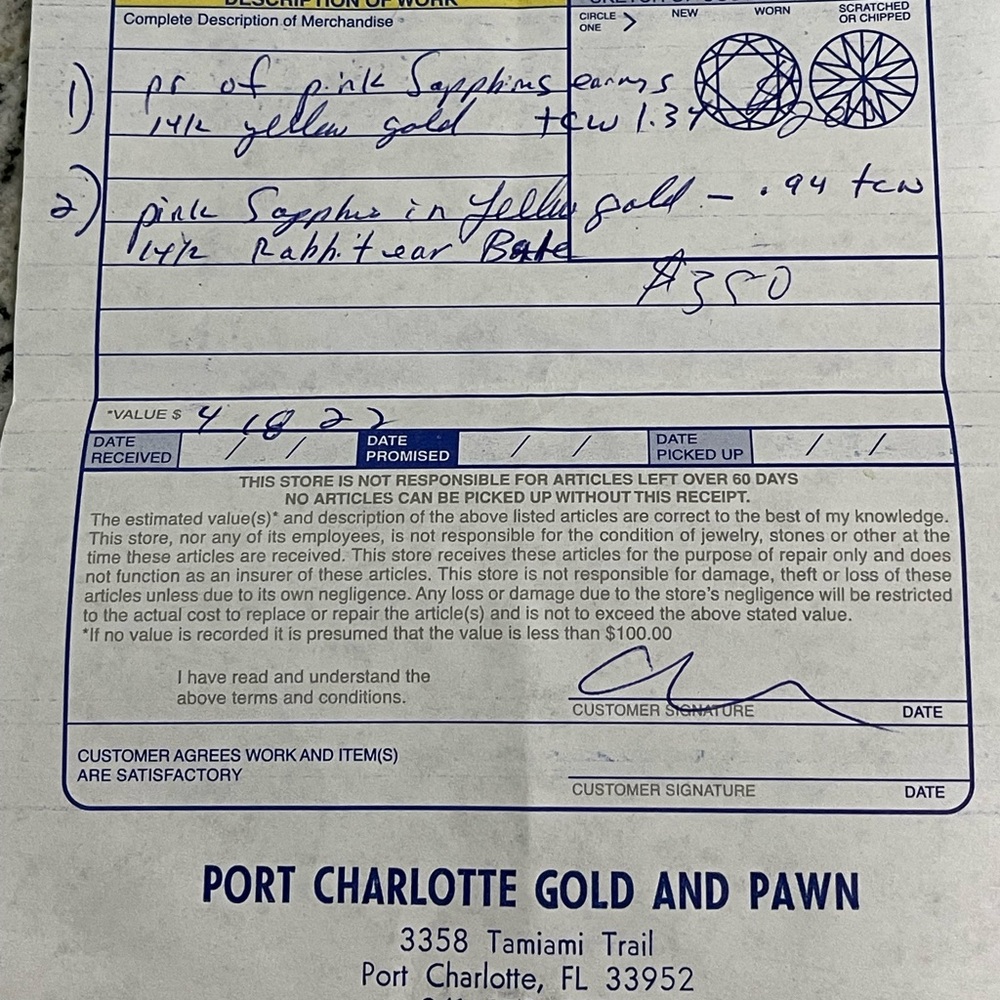 DESCRIPTION OF WORK
Complete Description of Merchandise
CIRCLE ONE > NEW WORN SCRATCHED OR CHIPPED
1) pr of pink Sapphires earings
14k yellow gold tcw 1.34
2) pink Sapphire in Yellow gold - .94 tcw
14k Rabbit ear Bale
$350
*VALUE $ 4 18 22
DATE RECEIVED / / DATE PROMISED / / DATE PICKED UP / /
THIS STORE IS NOT RESPONSIBLE FOR ARTICLES LEFT OVER 60 DAYS
NO ARTICLES CAN BE PICKED UP WITHOUT THIS RECEIPT.
The estimated value(s)* and description of the above listed articles are correct to the best of my knowledge.
This store, nor any of its employees, is not responsible for the condition of jewelry, stones or other at the
time these articles are received. This store receives these articles for the purpose of repair only and does
not function as an insurer of these articles. This store is not responsible for damage, theft or loss of these
articles unless due to its own negligence. Any loss or damage due to the store's negligence will be restricted
to the actual cost to replace or repair the article(s) and is not to exceed the above stated value.
*If no value is recorded it is presumed that the value is less than $100.00
I have read and understand the
above terms and conditions.
CUSTOMER SIGNATURE DATE
CUSTOMER AGREES WORK AND ITEM(S)
ARE SATISFACTORY
CUSTOMER SIGNATURE DATE
PORT CHARLOTTE GOLD AND PAWN
3358 Tamiami Trail
Port Charlotte, FL 33952